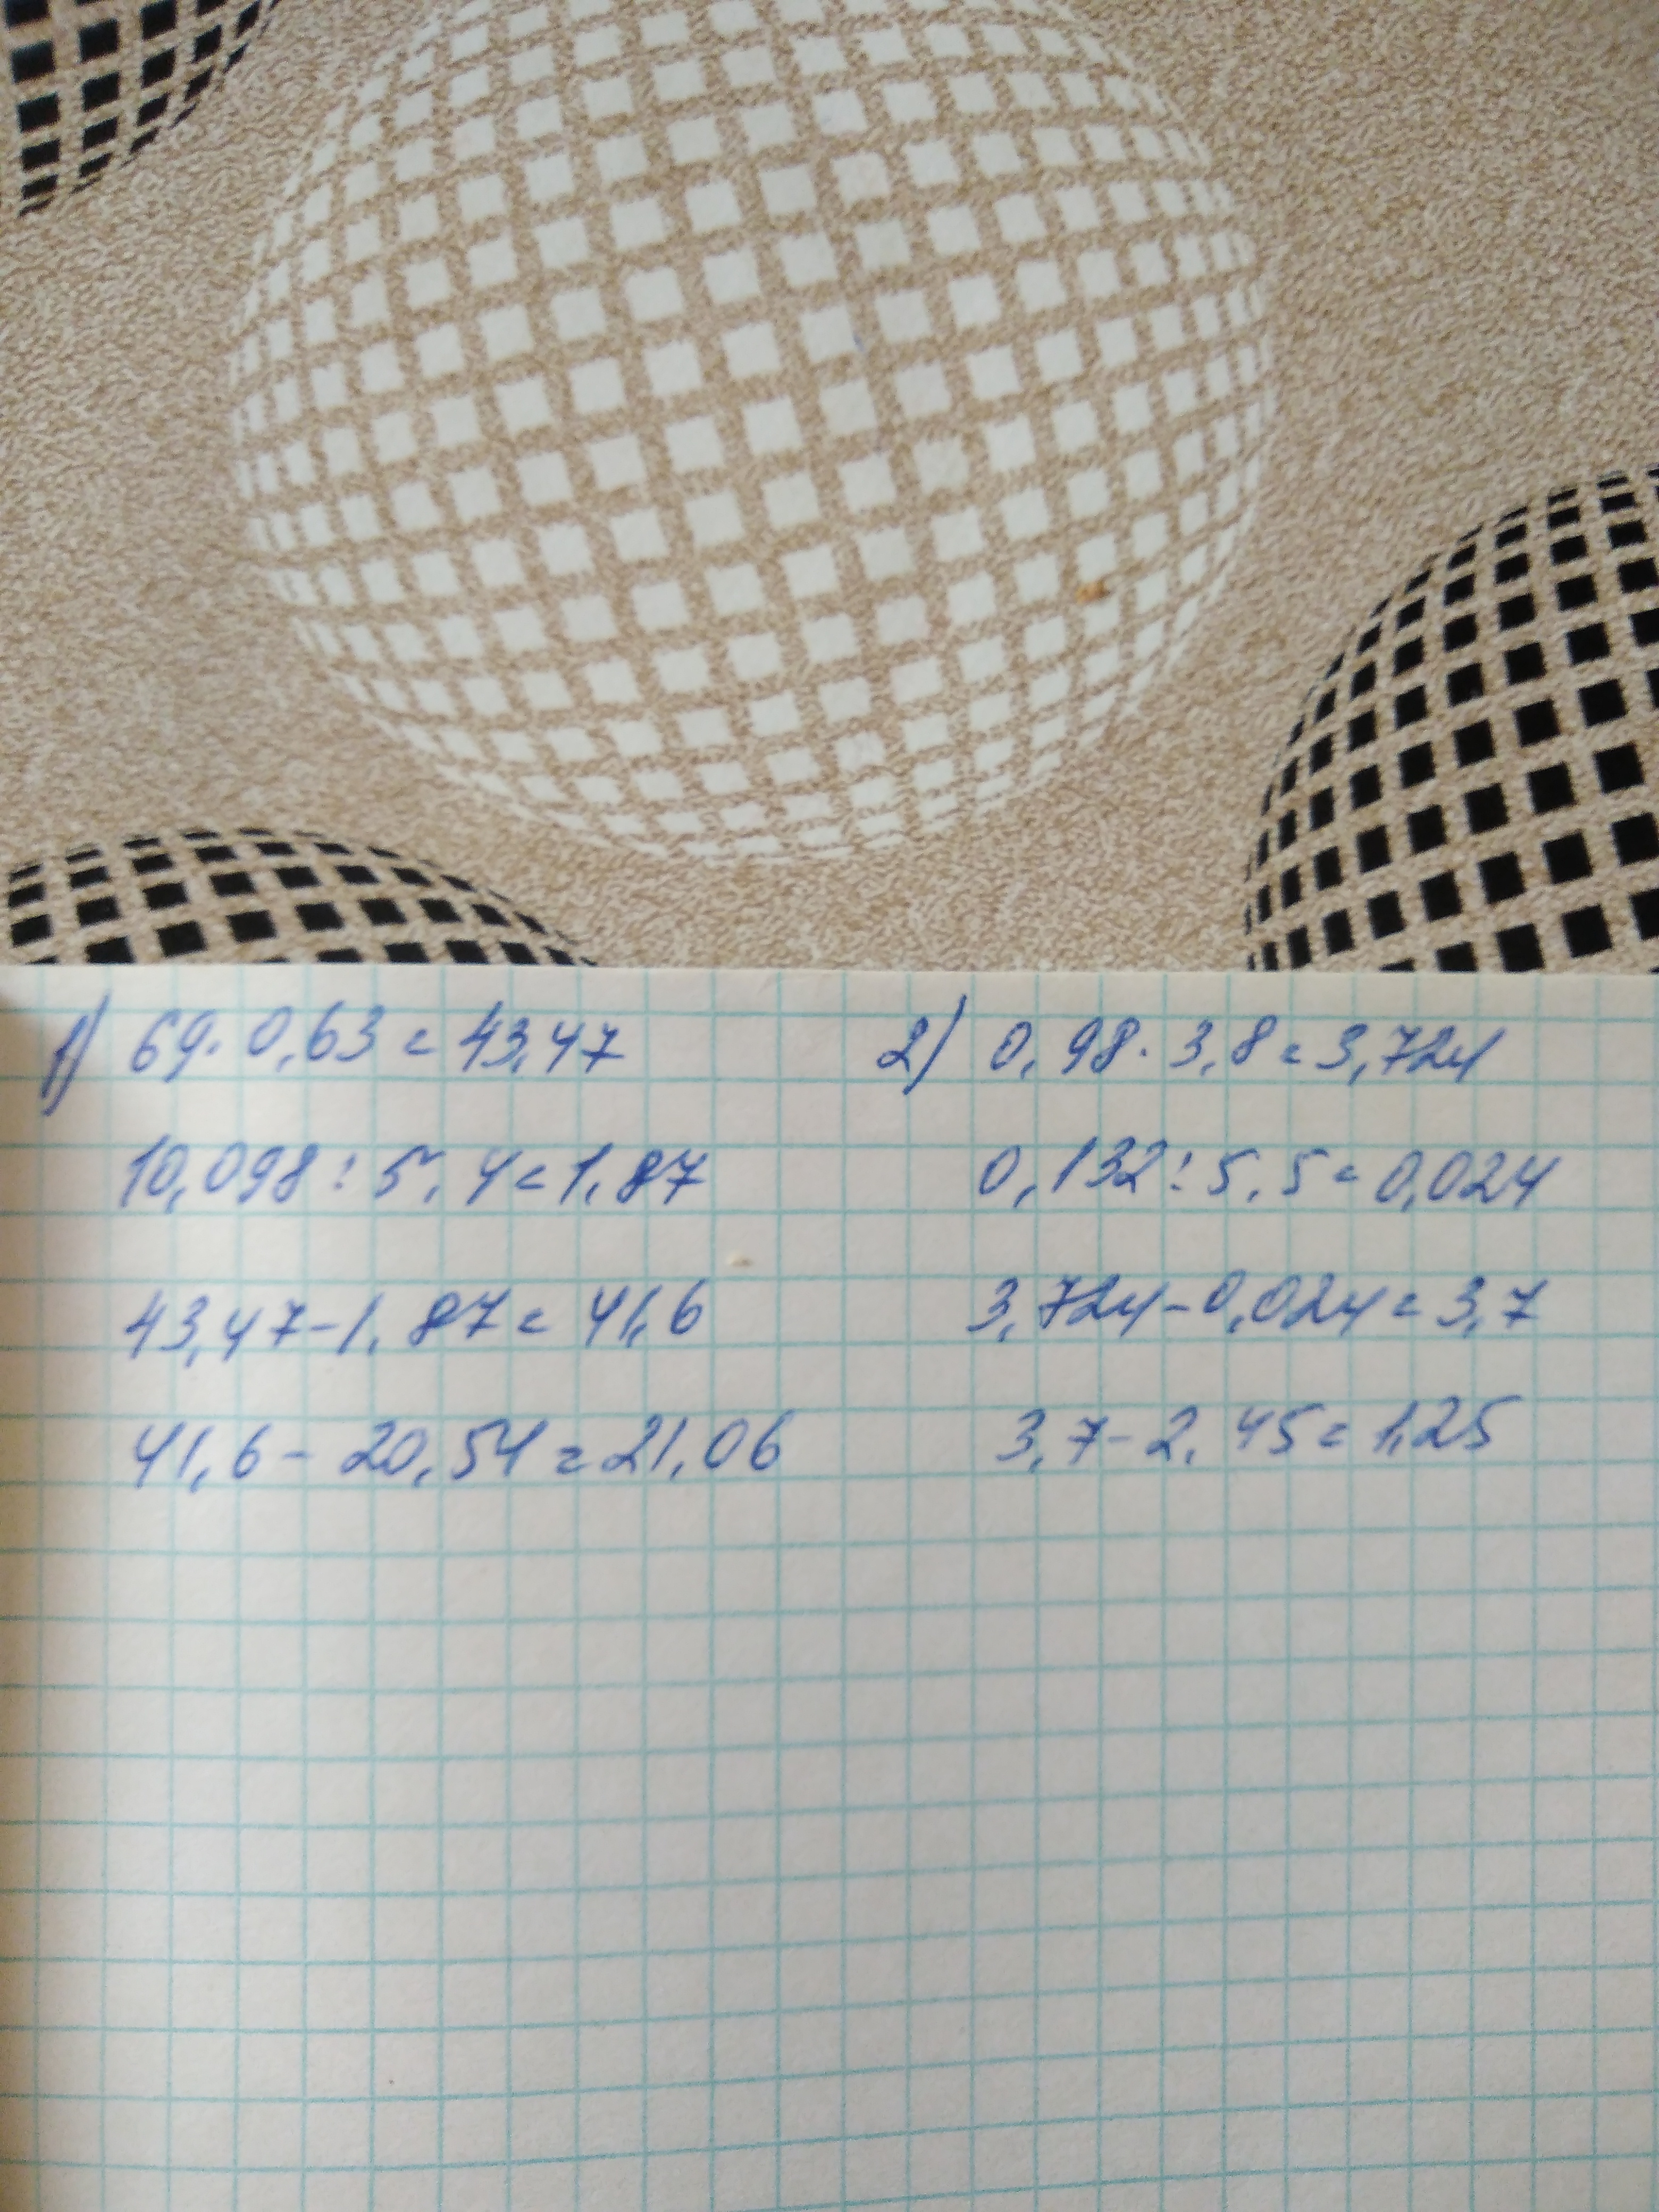 1) 69 · 0,63 = 43,47
10,098 : 5,4 = 1,87
43,47 - 1,87 = 41,6
41,6 - 20,54 = 21,06
2) 0,98 · 3,8 = 3,724
0,132 : 5,5 = 0,024
3,724 - 0,024 = 3,7
3,7 - 2,45 = 1,25